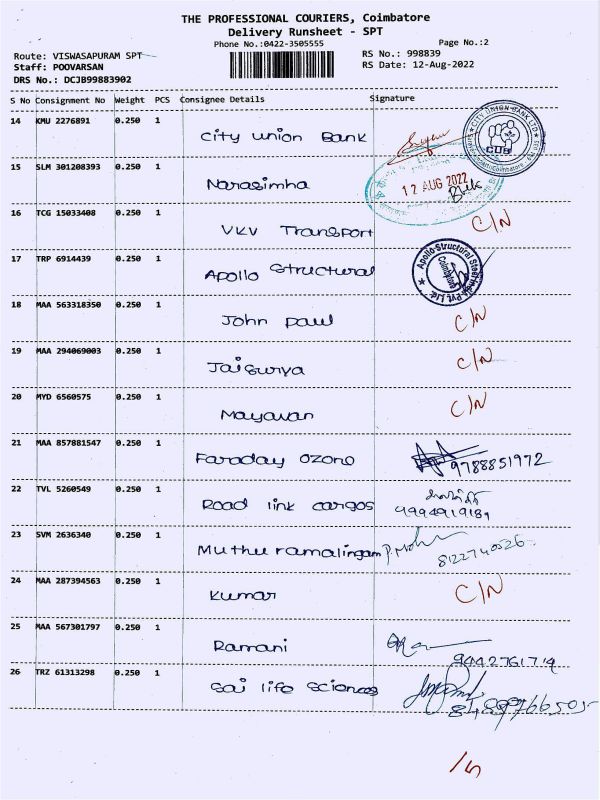 THE PROFESSIONAL COURIERS, Coimbatore
Delivery Runsheet - SPT
Phone No.:0422-3505555
Page No.:2
Route: VISWASAPURAM SPT
RS No.: 998839
Staff: POOVARSAN
RS Date: 12-Aug-2022
DRS No.: DCJB99883902
S No Consignment No Weight PCS Consignee Details Signature
14 KMU 2276891 0.250 1 City Union Bank
CITY UNION BANK LTD
CUB
Coimbatore
15 SLM 301208393 0.250 1 Narasimha
12 AUG 2022
16 TCG 15033408 0.250 1 VKV Transport C/N
17 TRP 6914439 0.250 1 Apollo Structural
Apollo Structural Steel India Pvt Ltd.
Coimbatore
18 MAA 563318350 0.250 1 John paul C/N
19 MAA 294069003 0.250 1 Jaisurya C/N
20 MYD 6560575 0.250 1 Mayavan C/N
21 MAA 857881547 0.250 1 Faraday ozono 9788851972
22 TVL 5260549 0.250 1 Road link cargos 4994919189
23 SVM 2636340 0.250 1 Muthu ramalingam P. Mohan
8122740526
24 MAA 287394563 0.250 1 Kumar C/N
25 MAA 567301797 0.250 1 Ramani
9042761714
26 TRZ 61313298 0.250 1 Sai life sciences